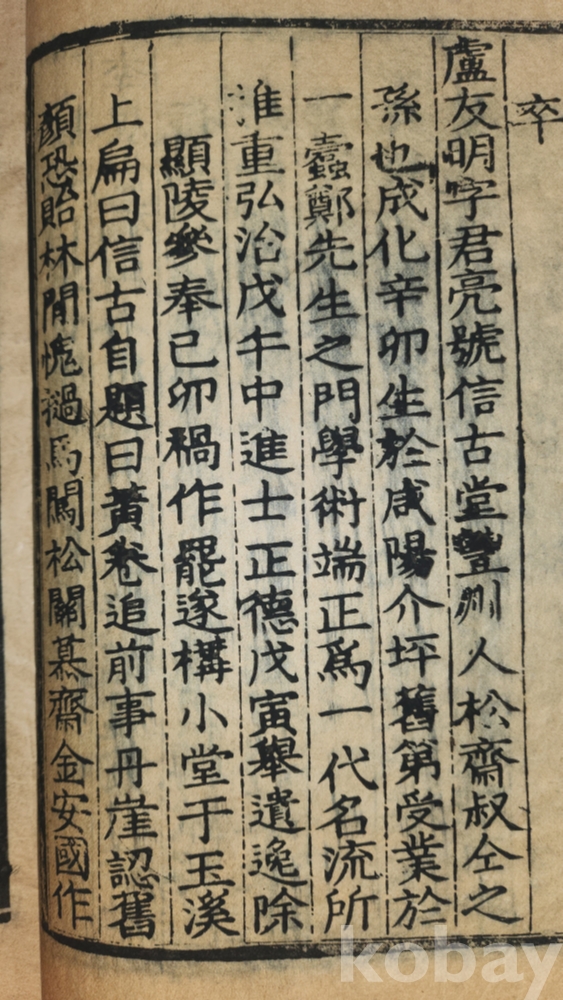 卒
盧友明字君亮號信古堂豐川人松齋叔仝之
孫也成化辛卯生於咸陽介坪舊第受業於
一蠹鄭先生之門學術端正爲一代名流所
推重弘治戊午中進士正德戊寅舉遺逸除
顯陵參奉己卯禍作罷遂構小堂于玉溪
上扁曰信古自題曰黃卷追前事丹崖認舊
顏恐貽林間愧撾馬闖松關慕齋金安國作
kobay